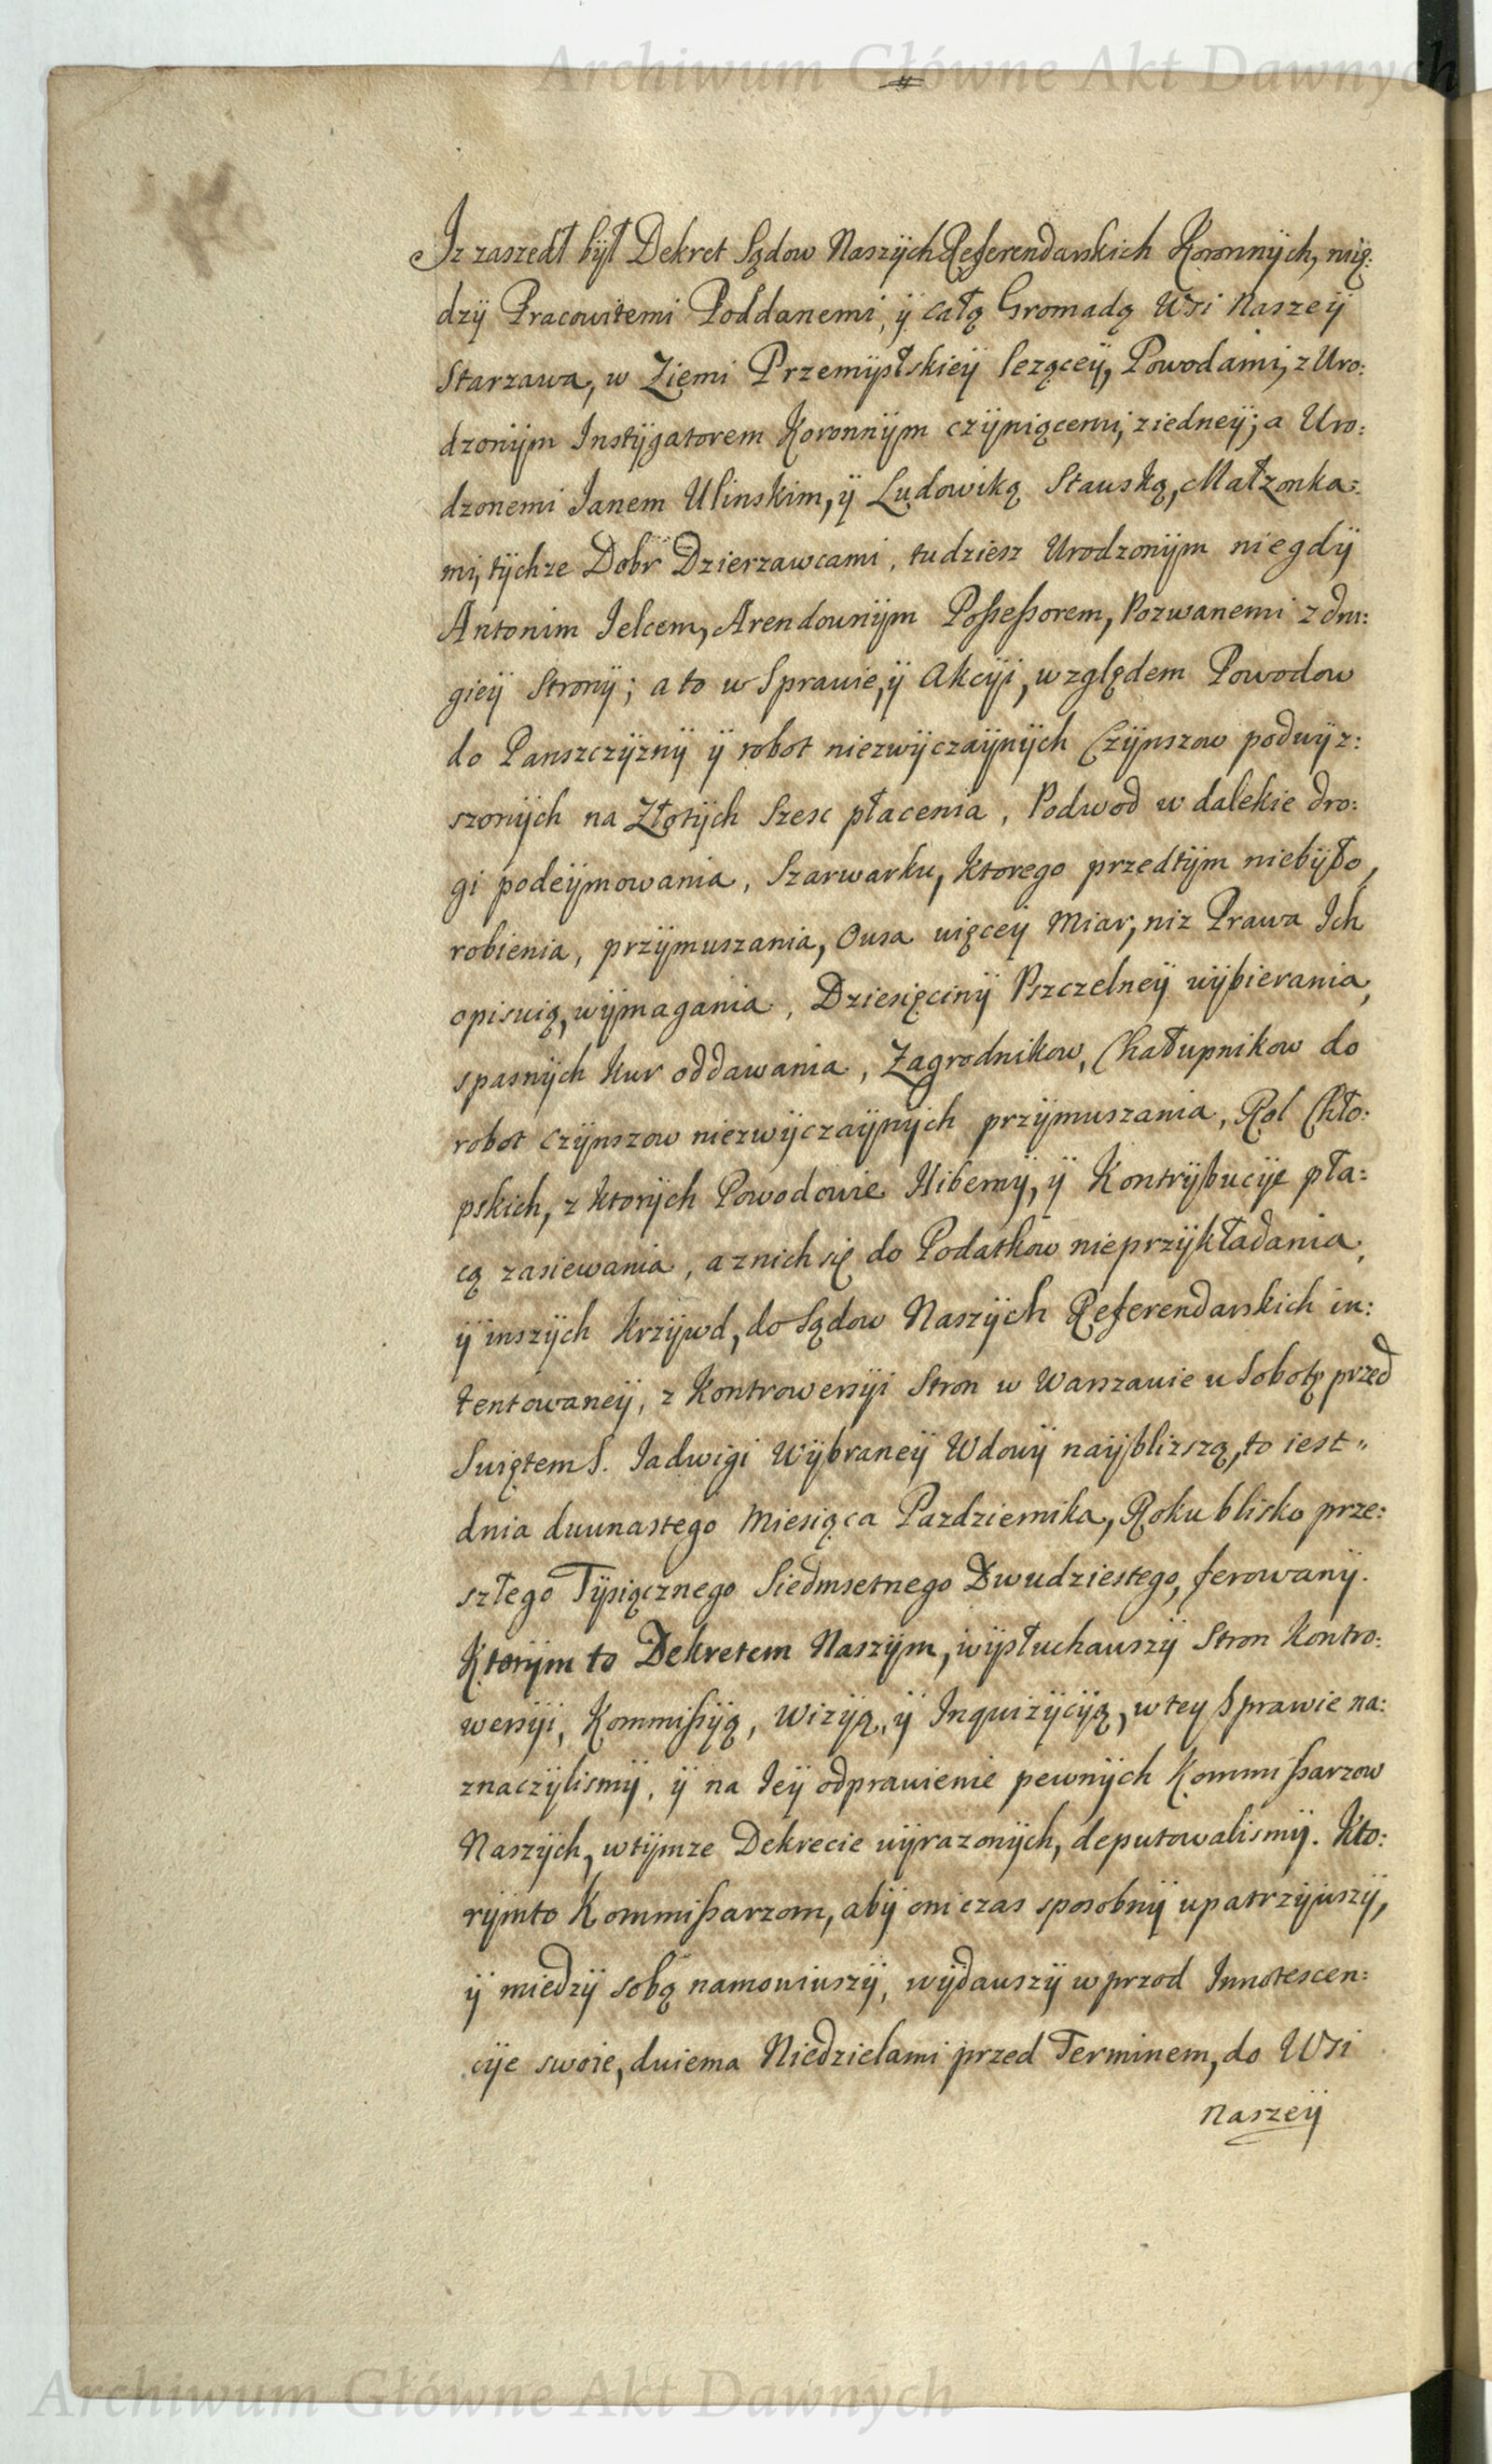 Archiwum Główne Akt Dawnych
Jz zaszedł był Dekret Sądow Naszych Referendarskich Koronnych, mię:
dzy Pracowitemi Poddanemi, y całą Gromadą Wsi Naszey
Starzawa, w Ziemi Przemysłskiey lezącey, Powodami, z Uro:
dzonym Instygatorem Koronnym czyniącemi, ziedney; a Uro:
dzonemi Janem Ulinskim, y Ludowiką Stauską, Małzonka:
mi, tychze Dobr Dzierzawcami, tudziesz Urodzonym niegdy
Antonim Jelcem, Arendownym Poßeßorem, Pozwanemi z dru:
giey Strony; a to w Sprawie, y Akcyi, względem Powodow
do Panszczyzny y robot niezwyczaynych Czynszow podwyz:
szonych na Złotych Szesc płacenia, Podwod w dalekie dro:
gi podeymowania, Szarwarku, ktorego przedtym niebyło,
robienia, przymuszania, Owsa więcey Miar, niz Prawa Ich
opisuią, wymagania, Dziesięciny Pszczelney wybierania,
spasnych Kur oddawania, Zagrodnikow, Chałupnikow do
robot czynszow niezwyczaynych przymuszania, Rol Chło:
pskich, z ktorych Powodowie Hiberny, y Kontrybucye pła:
cą zasiewania, a znich się do Podatkow nieprzykładania,
y inszych Krzywd, do Sądow Naszych Referendarskich in:
tentowaney, z Kontrowersyi Stron w Warszawie w Sobotę przed
Swiętem S. Jadwigi Wybraney Wdowy nayblizszą, to iest "
dnia dwunastego Miesiąca Pazdziernika, Roku blisko prze:
szłego Tysiącznego Siedmsetnego Dwudziestego, ferowany.
Ktorym to Dekretem Naszym, wysłuchawszy Stron Kontro:
wersyi, Kommißyą, Wizyą, y Inquizycyą, w tey Sprawie na:
znaczylismy, y na Iey odprawienie pewnych Kommißarzow
Naszych, wtymze Dekrecie wyrazonych, deputowalismy. Kto:
rymto Kommißarzom, aby oni czas sposobny upatrzywszy,
y miedzy sobą namowiwszy, wydawszy wprzod Innotescen:
cye swoie, dwiema Niedzielami przed Terminem, do Wsi
Naszey
Archiwum Główne Akt Dawnych